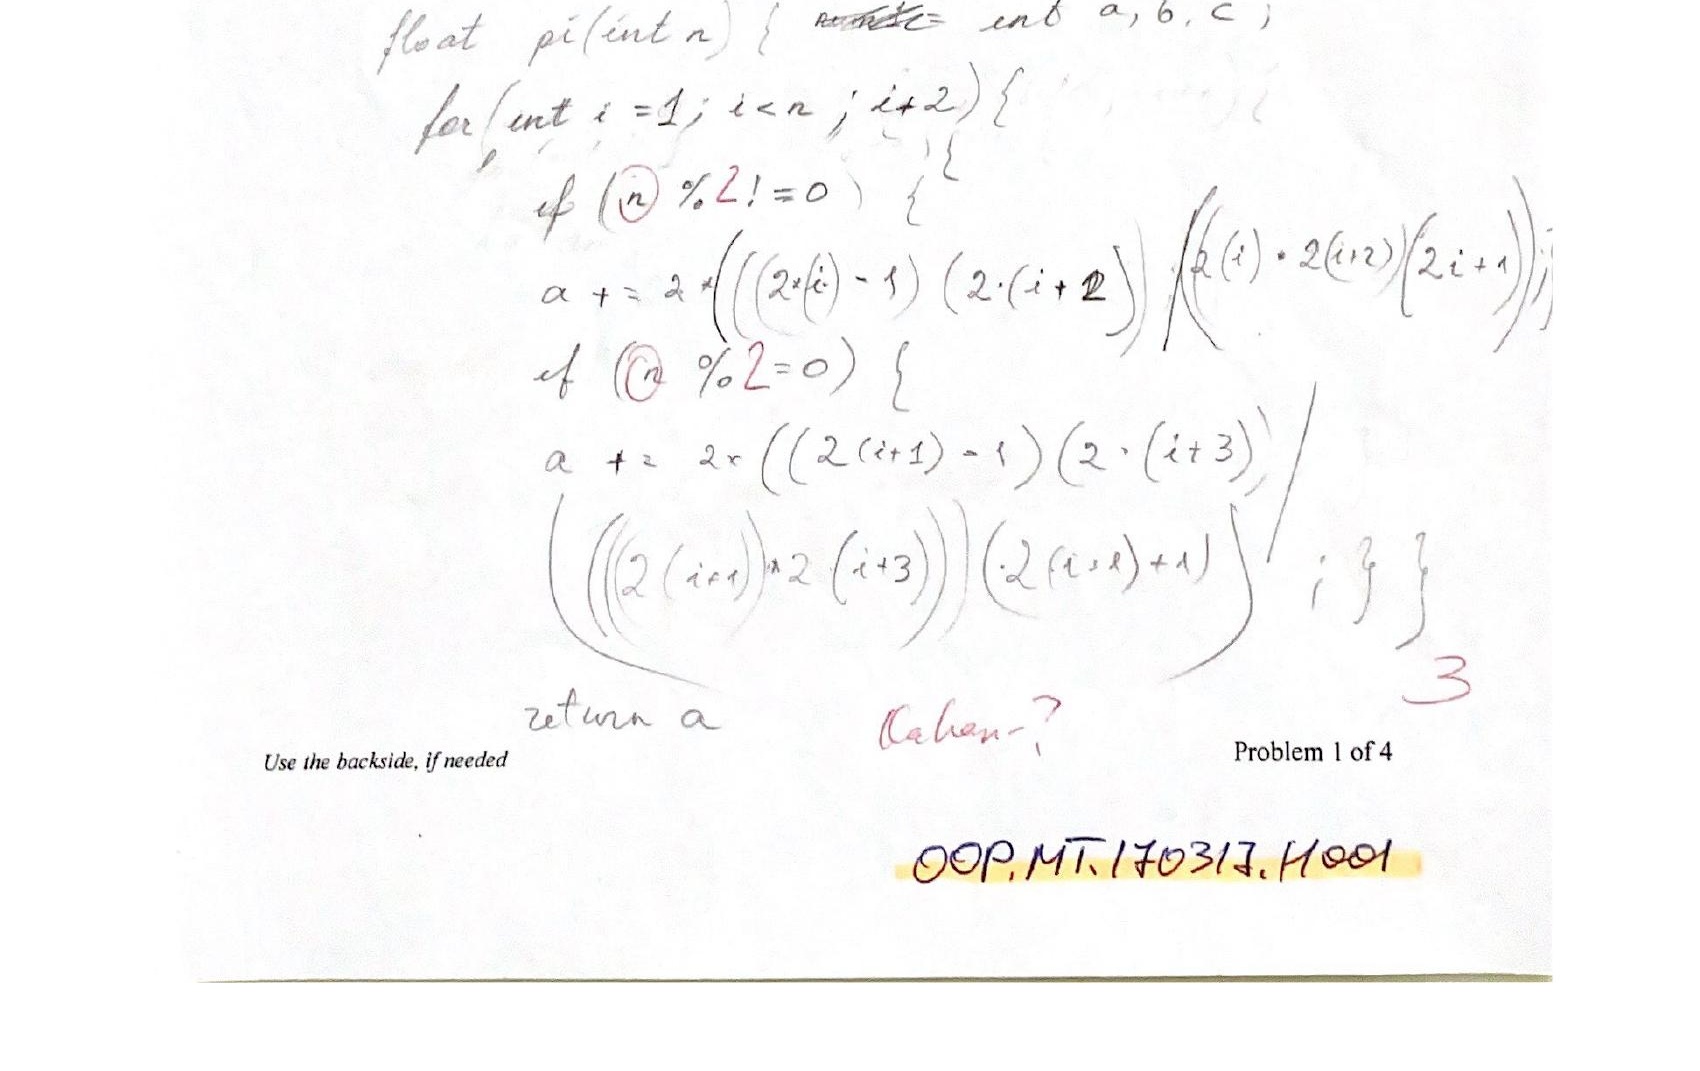 float pi(int n) { int a, b, c ;
for(int i =1; i<n ; i+2){
{
if (n %2!=0) {
a += 2*(((2*(i)-1) (2·(i+2)) /((2(i)·2(i+2))(2i+1));}
if (n %2=0) {
a += 2*((2(i+1)-1)(2·(i+3)) /
(((2(i+1))*2(i+3)))(·2(i+1)+1) ; } }
3
return a Kahan-?
Use the backside, if needed Problem 1 of 4
OOP.MT.170317.H001